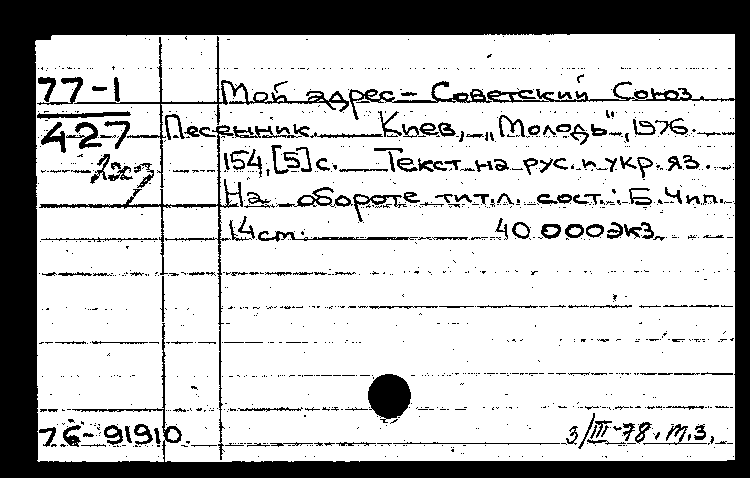 77-1 Мой адрес - Советский Союз.
427 Песенник. Киев, „Молодь", 1976.
154,[5] с. Текст на рус. и укр. яз.
На обороте тит.л. сост.: Б.Чип.
14 cm. 40 000 экз.
76-91910. 3/III-78. т.з.